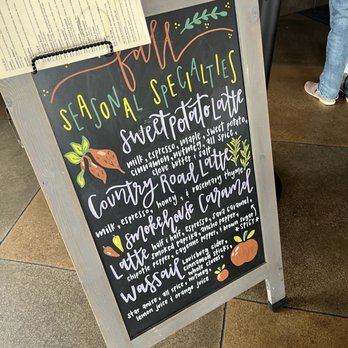 fall
SEASONAL SPECIALTIES
Sweet Potato Latte
milk, espresso, maple, sweet potato,
cinnamon, nutmeg, all spice,
clove butter + salt
Country Road Latte
milk, espresso, honey, + rosemary thyme
Smokehouse Caramel
Latte
half + half, espresso, caramel,
smoked paprika, ancho pepper,
chipotle pepper, cayenne pepper, brown sugar
+ spice
Wassail
cider,
cinnamon sticks,
whole cloves,
star anise, all spice, nutmeg,
lemon juice + orange juice